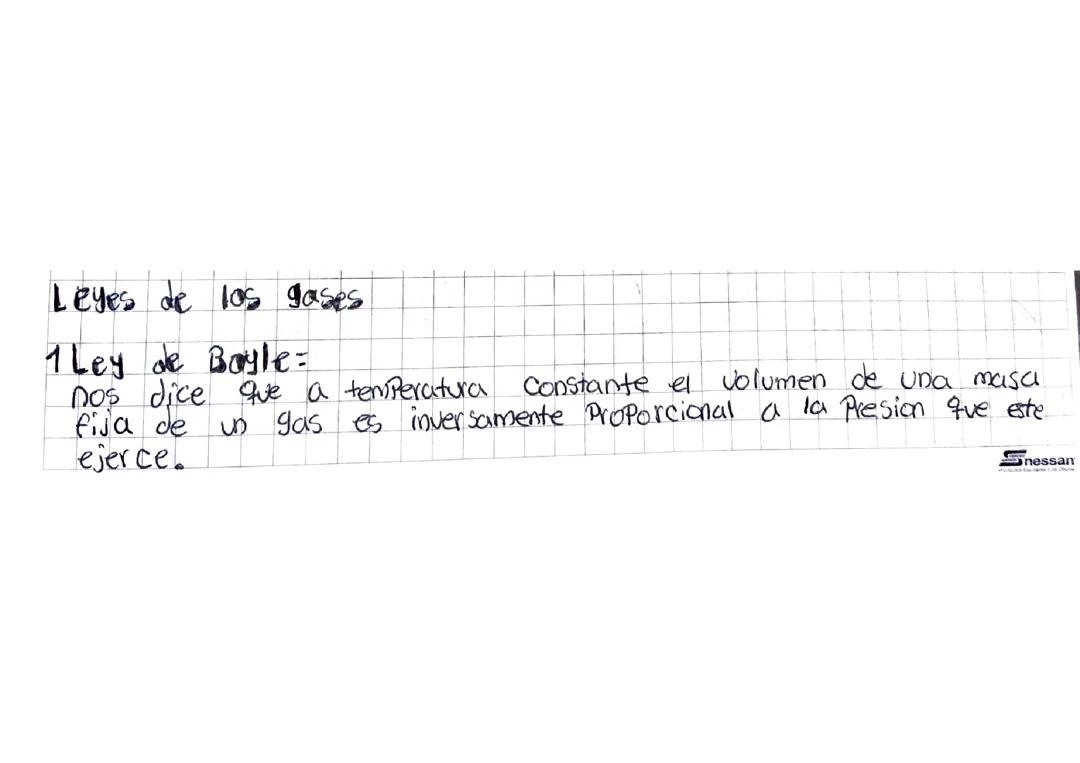 Leyes de los gases
1 Ley de Boyle=
nos dice que a temperatura constante el volumen de una masa
fija de un gas es inversamente proporcional a la presion que este
ejerce.
Snessan